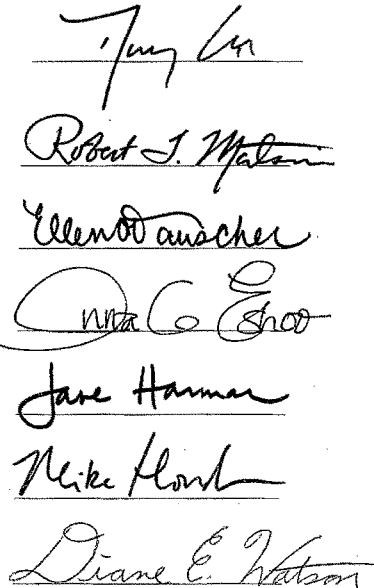 Robert T. Matsui
Ellen O Tauscher
Anna G Eshoo
Jane Harman
Mike Honda
Diane E. Watson